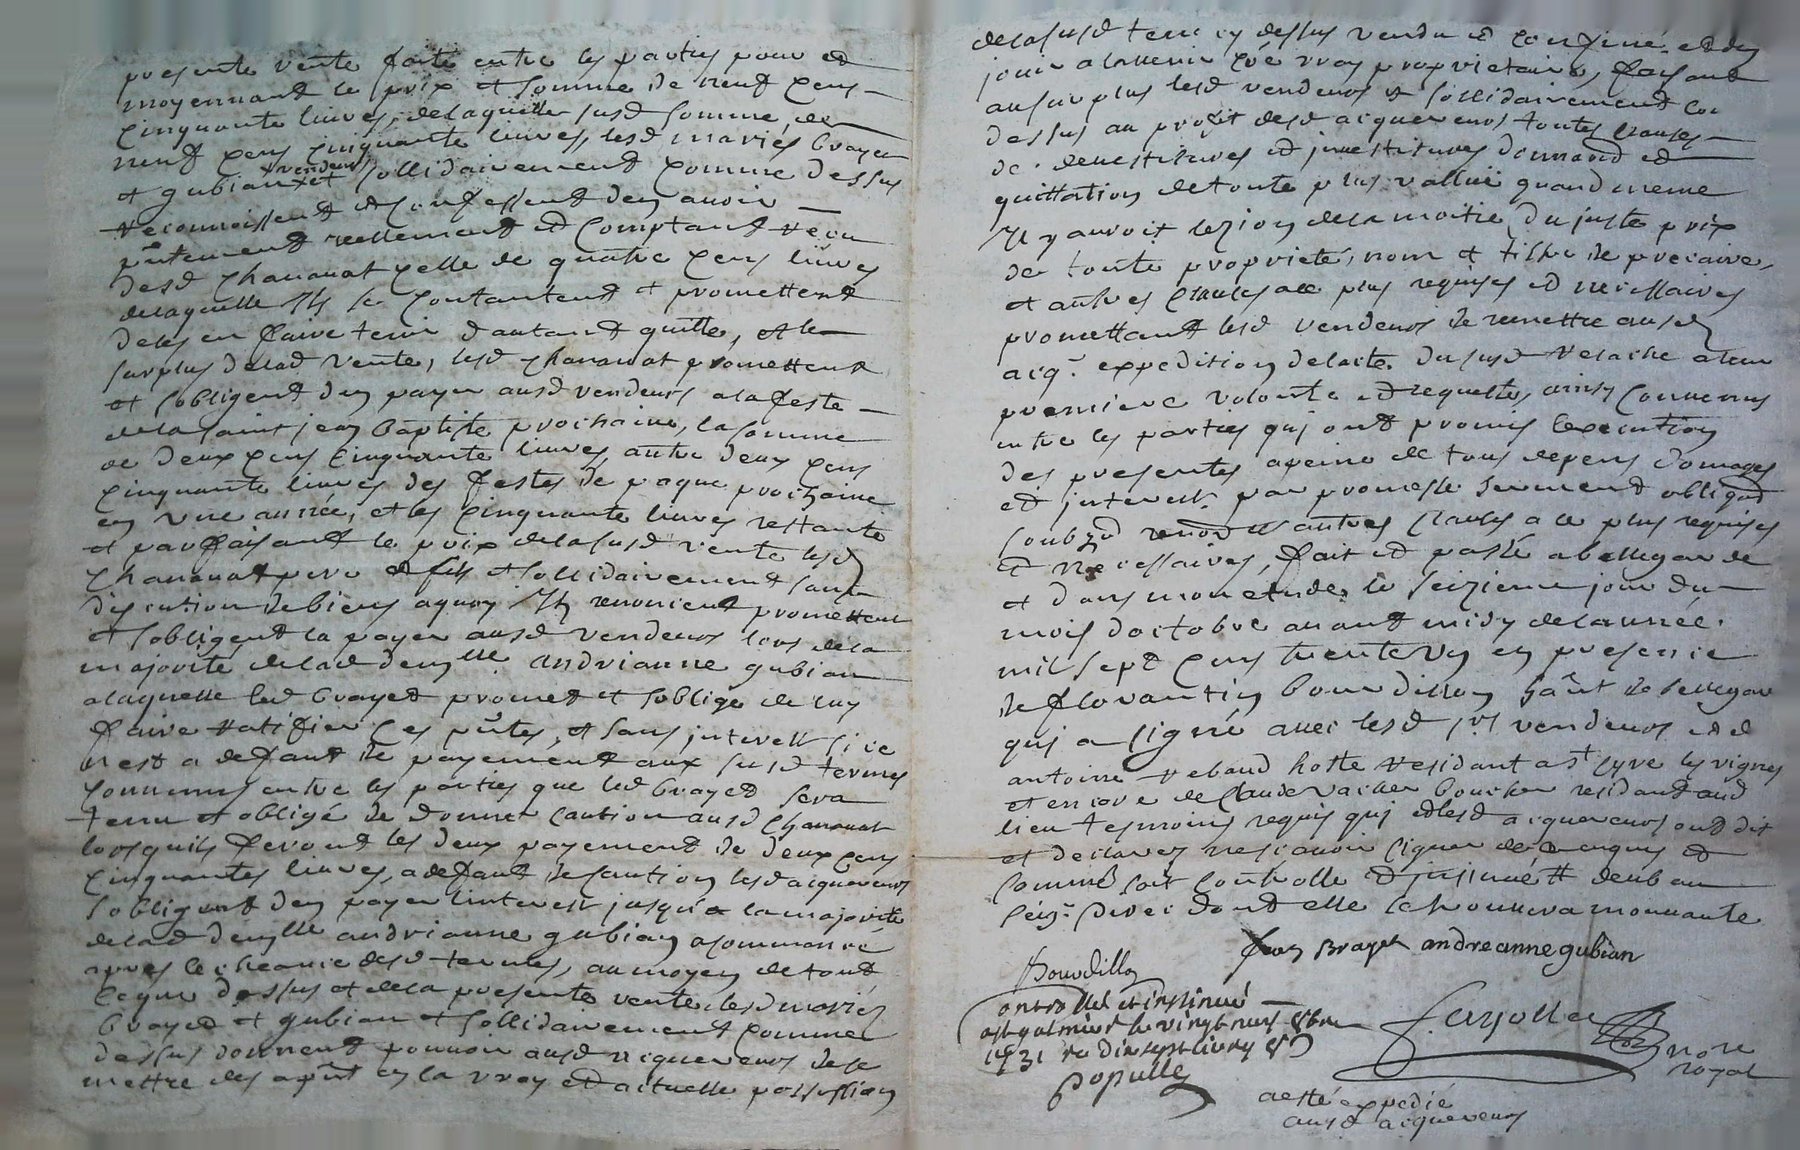 presente vente faite entre les parties pour et
moyennant le prix et somme de neuf cens
cinquante livres, de laquelle susd somme, de
neuf cens cinquante livres, lesd mariés brayet
et gubian vendeurs sollidairement comme dessus
reconnoissent et confessent den avoir
pntement reellement et comptant reçu
desd chananat celle de quatre cens livres
de laquelle Ils se contantent et promettent
deles en faire tenir dautant quitte, et le
surplus delad vente, lesd chananat promettent
et sobligent den payer ausd vendeurs a la feste
de la saint jean baptiste prochaine, la somme
de deux cens cinquante livres, autre deux cens
cinquante livres des festes de paque prochaine
en une année, et les cinquante livres restante
et parfaisant le prix dela susd vente lesd
chananat pere et fils et sollidairement sans
discution de biens aquoy Ils renoncent promettent
et sobligent la payer ausd vendeurs lors de la
majorité de lad demlle andrianne gubian
a laquelle led brayet promet et soblige de luy
faire ratifier ces pntes, et sans interest si ce
nest a defaut de payement aux susd termes
convenus entre les parties que led brayet sera
tenu et obligé de donner caution ausd chananat
lorsquils feront les deux payement de deux cens
cinquantes livres, a defaut de caution lesd acquereurs
sobligent den payer linterest jusqua la majorité
delad demlle andrianne gubian a commancé
apres lecheance desd termes, au moyen de tout
ce que dessus et dela presente vente lesd mariés
brayet et gubian et sollidairement comme
dessus donnent pouvoir ausd acquereurs de se
mettre des apnt en la vray et actuelle possession
dela susd terre cy dessus vendu et confiné et den
jouir a lavenir cõe vray proprietaire, faisant
au surplus lesd vendeurs et sollidairement co
dessus au profit desd acquereurs toutes clauses
de devestitures et investitures demand et
quittation de toute plus vallue quand meme
Il y auroit lezion dela moitie du juste prix
de toute proprieté, nom et tiltre de precaire,
et autres clauses a ce plus requises et necessaires
promettant lesd vendeurs de remettre ausd
acq.r expedition de lacte du susd relache a leur
premiere volonté et requette, ainsy convenus
entre les parties qui ont promis lexecution
des presentes a peine de tous depens domages
et interest par promesse serment obligaon
soubzon renon et autres clauses a ce plus requises
et necessaires, fait et passé a bellegarde
et dans mon etude le seizieme jour du
mois doctobre avant midy de lannée
mil sept cens trente un en presence
de florantin bourdillon hant de bellegarde
qui a signé avec lesd srs vendeurs et d
antoine rebaud hotte residant a st cyre les vignes
et encore de claude vacher boucher residant aud
lieu tesmoins requis qui et lesd acquereurs ont dit
et declarer ne scavoir signer de ce enquis et
sommé soit controllé et jnsinué
dont elle se trouvera mouvante
Bourdillon
fran Brayet andreanne gubian
controllé et insinué
a st galmier le vingt neuf 8bre
1731 re dix sept livres
populle
ferjolle
nore
royal
a esté expedié
ausd acquereurs